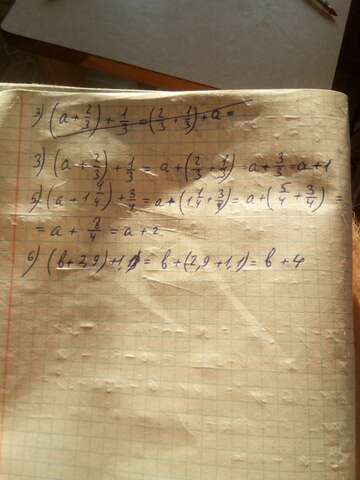 3) (a + 2/3) + 1/3 = (2/3 + 1/3) + a =
3) (a + 2/3) + 1/3 = a + (2/3 + 1/3) = a + 3/3 = a + 1
5) (a + 1 1/4) + 3/4 = a + (1 1/4 + 3/4) = a + (5/4 + 3/4) =
= a + 8/4 = a + 2
6) (b + 2,9) + 1,1 = b + (2,9 + 1,1) = b + 4